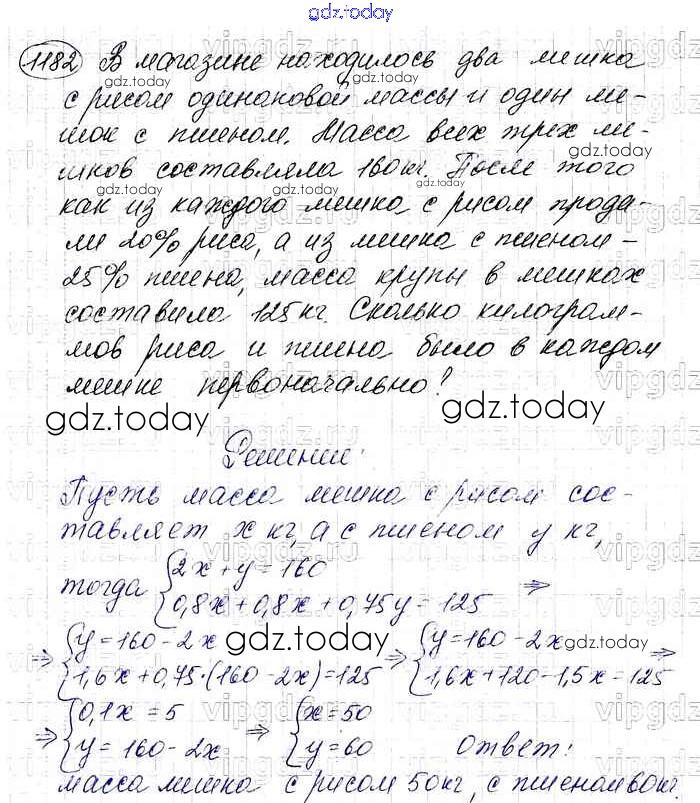 gdz.today
1182 В магазине находилось два мешка
с рисом одинаковой массы и один ме-
шок с пшеном. Масса всех трех ме-
шков составляла 160 кг. После того
как из каждого мешка с рисом прода-
ли 20% риса, а из мешка с пшеном -
25% пшена, масса крупы в мешках
составила 125 кг. Сколько килограм-
мов риса и пшена было в каждом
мешке первоначально?
gdz.today gdz.today
Решение:
Пусть масса мешка с рисом сос-
тавляет x кг, а с пшеном y кг,
тогда {2x + y = 160
{0,8x + 0,8x + 0,75y = 125 ⇒
⇒ {y = 160 - 2x ⇒ {y = 160 - 2x ⇒
{1,6x + 0,75·(160 - 2x) = 125 {1,6x + 120 - 1,5x = 125
⇒ {0,1x = 5 ⇒ {x = 50
{y = 160 - 2x {y = 60 Ответ:
масса мешка с рисом 50 кг, с пшеном 60 кг.